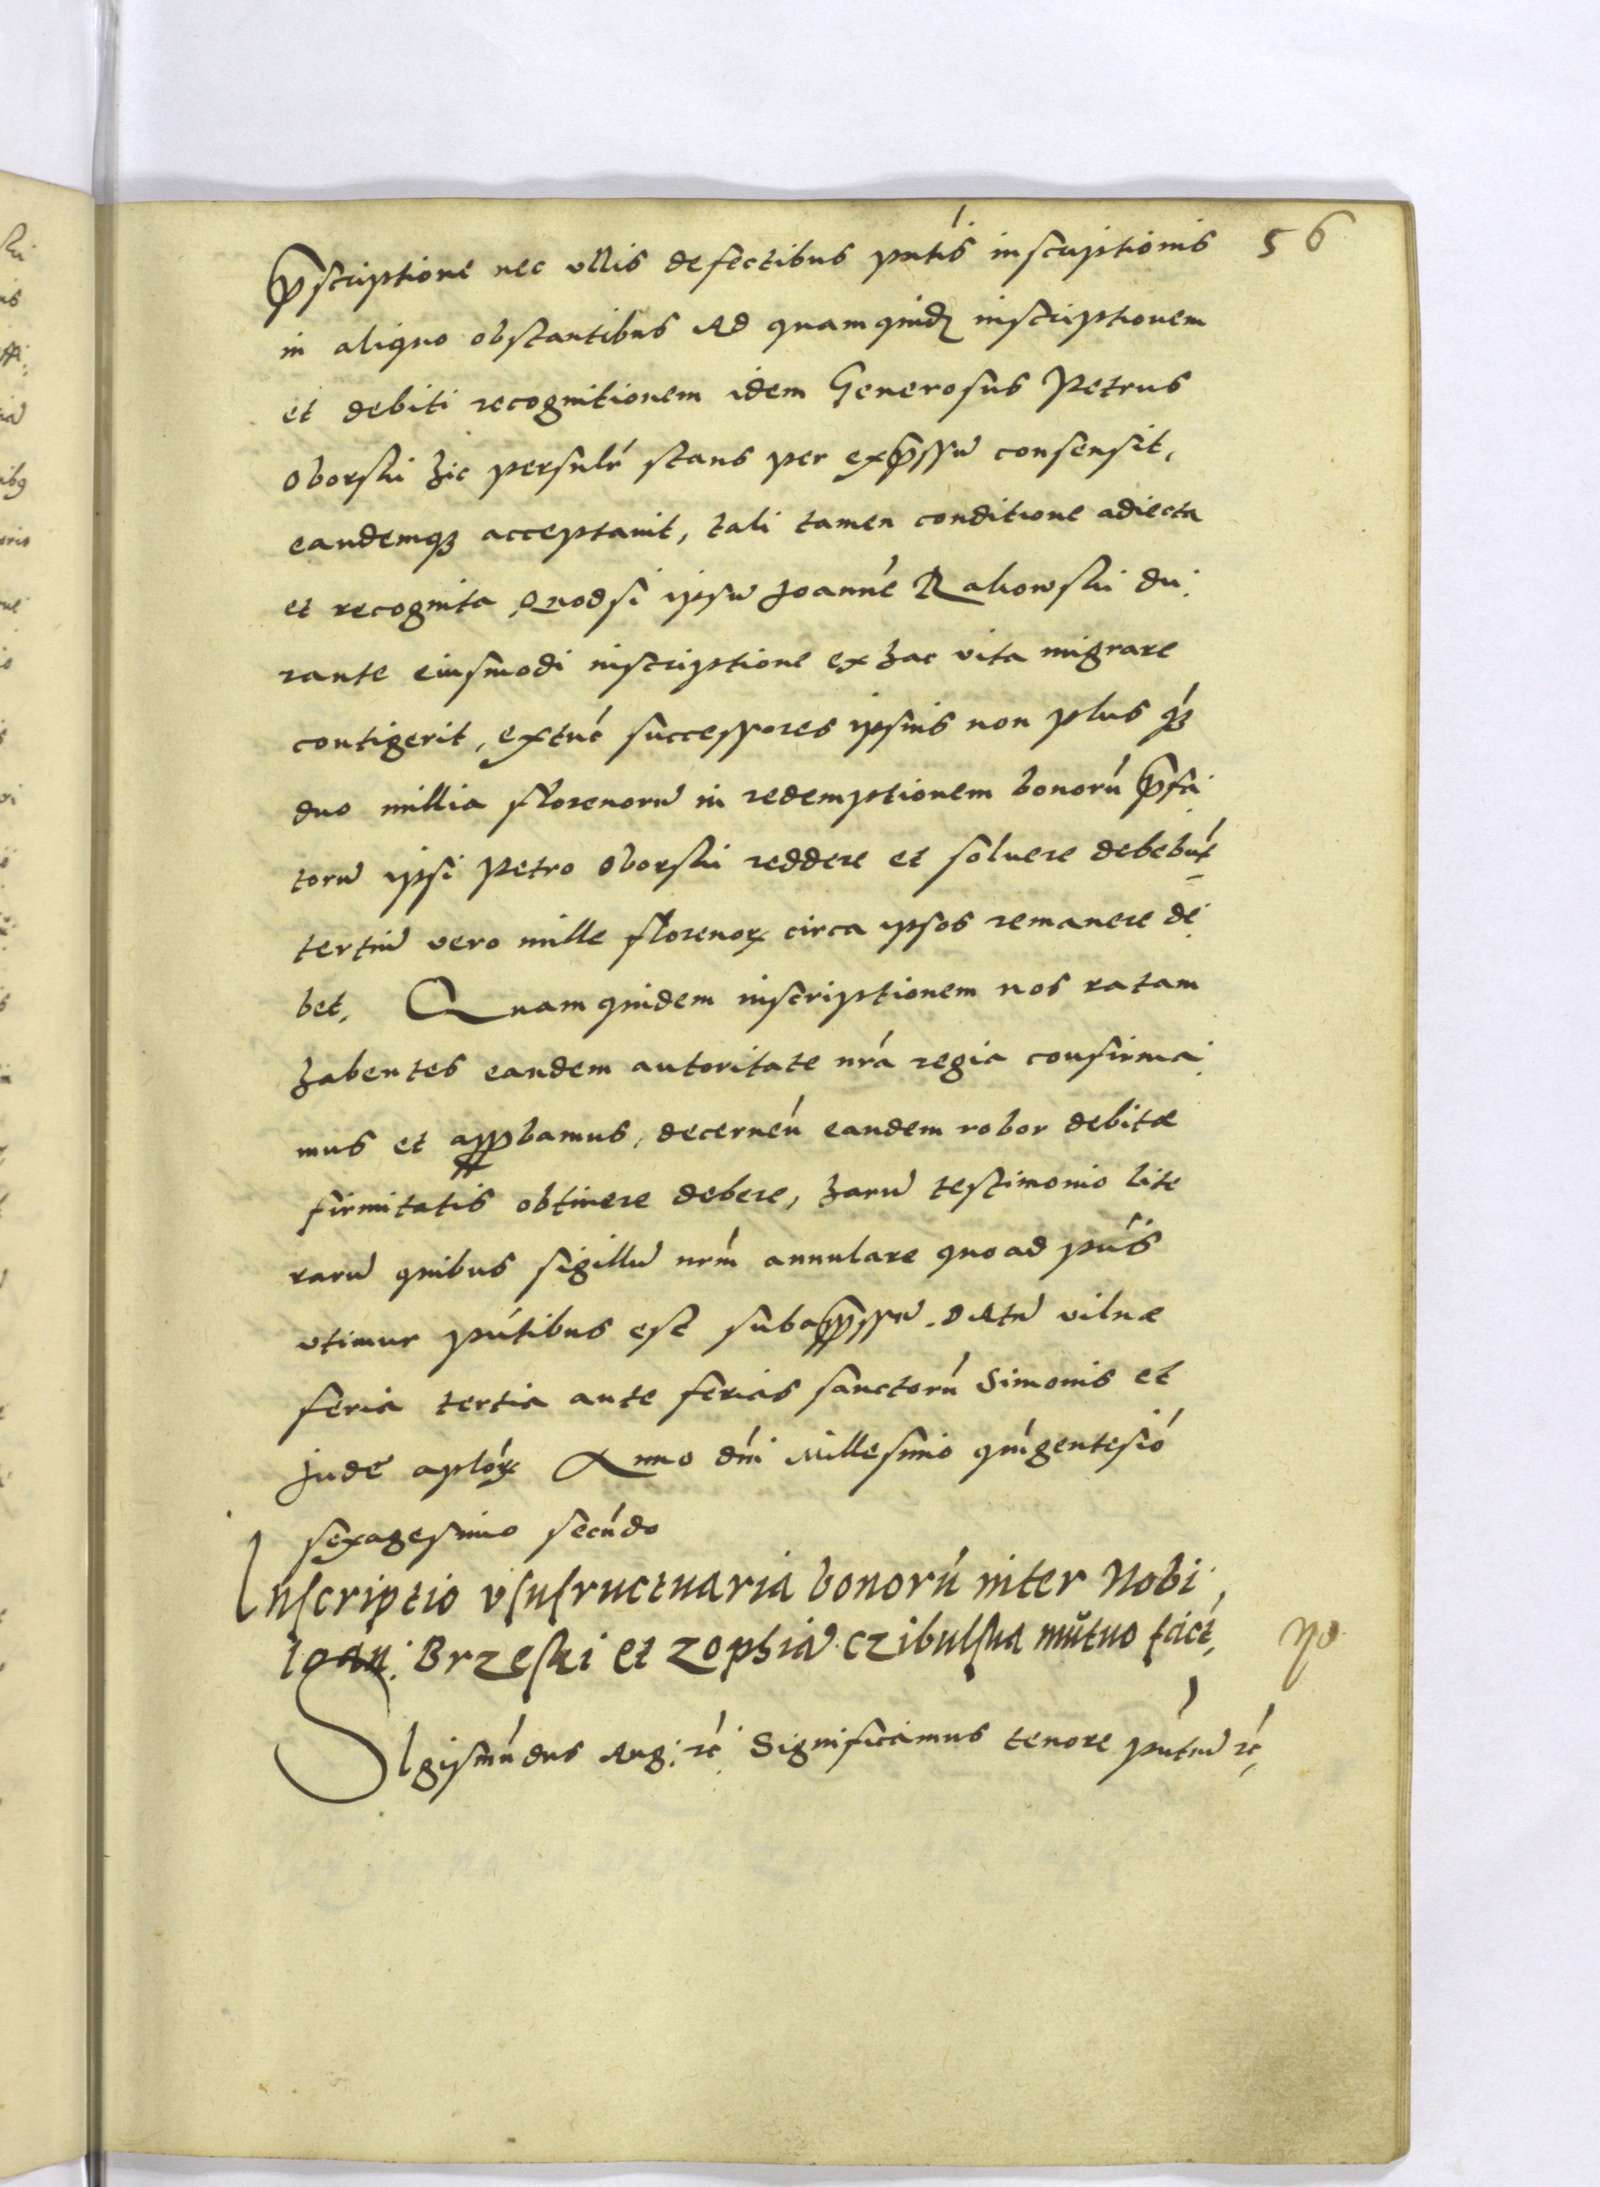 56
p̄scriptione nec ullis defectibus pn̄tis inscriptionis
in aliquo obstantibus Ad quam quidē inscriptionem
et debiti recognitionem idem Generosus Petrus
Oborski hic personalr̄ stans per exp̄ssū consensit,
eandemq; acceptavit, tali tamen conditione adiecta
et recognita Quod si ipsū Joannē Rakowski du
rante eiusmodi inscriptione ex hac vita migrare
contigerit, extūc successores ipsius non plus q̄
duo millia florenorū in redemptionem bonorū p̄fa
torū ipsi Petro Oborski reddere et soluere debebūt
tertiū vero mille florenoꝝ circa ipsos remanere de
bet, Quam quidem inscriptionem nos ratam
habentes eandem autoritate nr̄a regia confirma
mus et app̄bamus, decernen̄ eandem robor debitæ
firmitatis obtinere debere, harū testimonio lite
rarū quibus sigillū nrm̄ annulare quo ad pn̄s
utimur pn̄tibus est subapp̄ssū. Datū vilnæ
feria tertia ante ferias sanctorū Simonis et
Jude aplōꝝ Anno dn̄i Millesimo quīgentesiō
sexagesimo secūdo
Inscriptio usufructuaria bonorū inter Nobi
Ioan: Brzeski et Zophiā Czibulska mutuo fact,
Sigismūdus Aug: rc̄ Significamus tenore pn̄tiū rc̄,